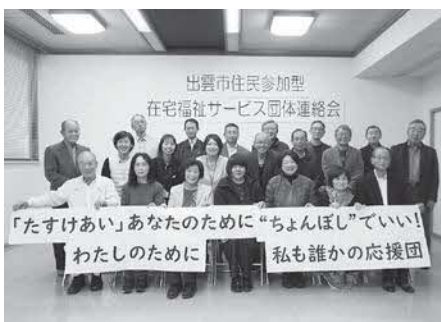 出雲市住民参加型
在宅福祉サービス団体連絡会
「たすけあい」あなたのために
わたしのために
“ちょんぼし”でいい!
私も誰かの応援団